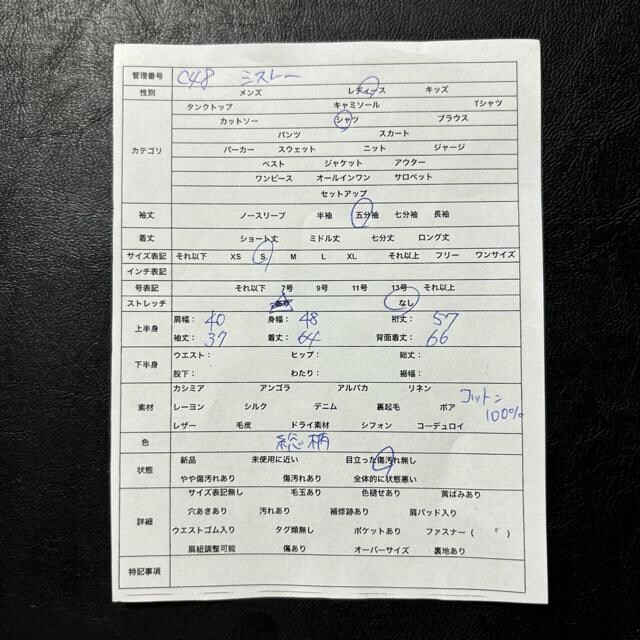 管理番号 C48 ミスレー
性別 メンズ レディース キッズ
タンクトップ キャミソール Tシャツ
カットソー シャツ ブラウス
パンツ スカート
カテゴリ パーカー スウェット ニット ジャージ
ベスト ジャケット アウター
ワンピース オールインワン サロペット
セットアップ
袖丈 ノースリーブ 半袖 五分袖 七分袖 長袖
着丈 ショート丈 ミドル丈 七分丈 ロング丈
サイズ表記 それ以下 XS S M L XL それ以上 フリー ワンサイズ
インチ表記
号表記 それ以下 7号 9号 11号 13号 それ以上
ストレッチ なし
上半身 肩幅: 40 身幅: 48 裄丈: 57
袖丈: 37 着丈: 64 背面着丈: 66
下半身 ウエスト: ヒップ: 総丈:
股下: わたり: 裾幅:
カシミア アンゴラ アルパカ リネン
素材 レーヨン シルク デニム 裏起毛 ボア コットン 100%
レザー 毛皮 ドライ素材 シフォン コーデュロイ
色 総柄
状態 新品 未使用に近い 目立った傷汚れ無し
やや傷汚れあり 傷汚れあり 全体的に状態悪い
サイズ表記無し 毛玉あり 色褪せあり 黄ばみあり
詳細 穴あきあり 汚れあり 補修跡あり 肩パッド入り
ウエストゴム入り タグ類無し ポケットあり ファスナー( )
肩紐調整可能 傷あり オーバーサイズ 裏地あり
特記事項